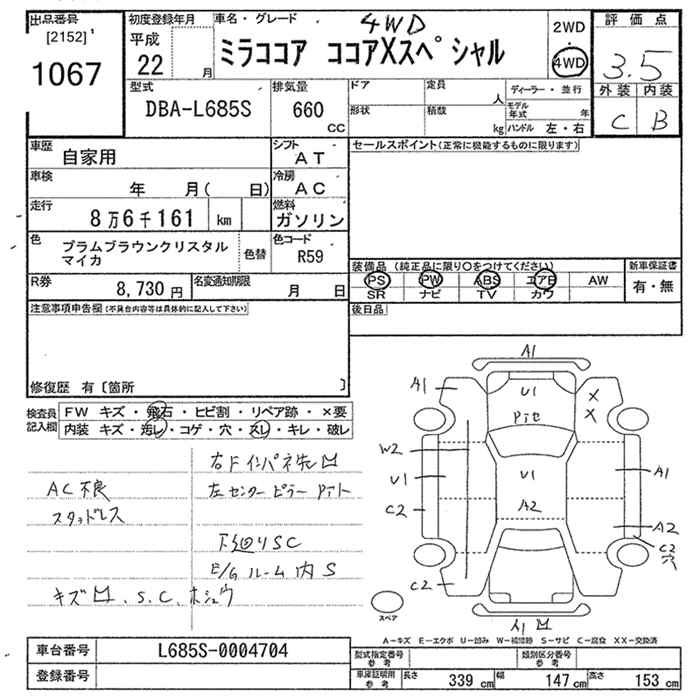 出品番号 初度登録年月 車名・グレード 4WD 2WD 評価点
[2152] 平成 ・
1067 22 月 ミラココア ココアXスペシャル 4WD 3.5
型式 排気量 ドア 定員 人 ディーラー・並行 外装 内装
DBA-L685S 660 cc 形状 積数 kg モデル年式 年 C B
ハンドル 左・右
車歴 自家用 シフト AT セールスポイント(正常に機能するものに限ります)
車検 年 月( 日) 冷房 AC
走行 8万6千161 km 燃料 ガソリン
色 プラムブラウンクリスタル 色替 色コード
マイカ R59
装備品 (純正品に限り○をつけてください) 新車保証書
R券 8,730 円 名変通知期限 月 日
PS PW ABS エアB AW 有・無
SR ナビ TV カワ
注意事項申告欄 (不具合内容等は具体的に記入して下さい) 後日品
修復歴 有〔箇所 〕
検査員 FW キズ・飛石・ヒビ割・リペア跡・×要
記入欄 内装 キズ・汚レ・コゲ・穴・スレ・キレ・破レ
右Fインパネ先凹
AC不良 左センターピラー Pitト
スタッドレス
下廻りSC
E/Gルーム内S
キズ凹.S.C.ホシュウ
A1
A1 U1 X
Pitセ X
W2
U1 U1 A1
C2 A2 A2
C2
穴
C2
スペア A凹
A−キズ E−エクボ U−凹み W−補修跡 S−サビ C−腐食 XX−交換済
車台番号 L685S-0004704 型式指定番号 参考 類別区分番号 参考
登録番号 車庫証明用 参考 長さ 339 cm 幅 147 cm 高さ 153 cm